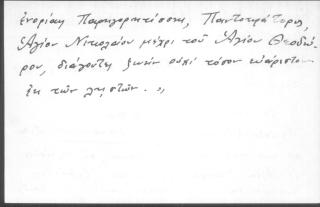 ἐνορίαι Παρηγορητίσσης, Παντοκράτορος,
Ἁγίου Νικολάου μέχρι τοῦ Ἁγίου Θεοδώ-
ρου, διάγουσι ζωὴν οὐχὶ τόσον εὐάριστον
ἐκ τῶν λῃστῶν. »